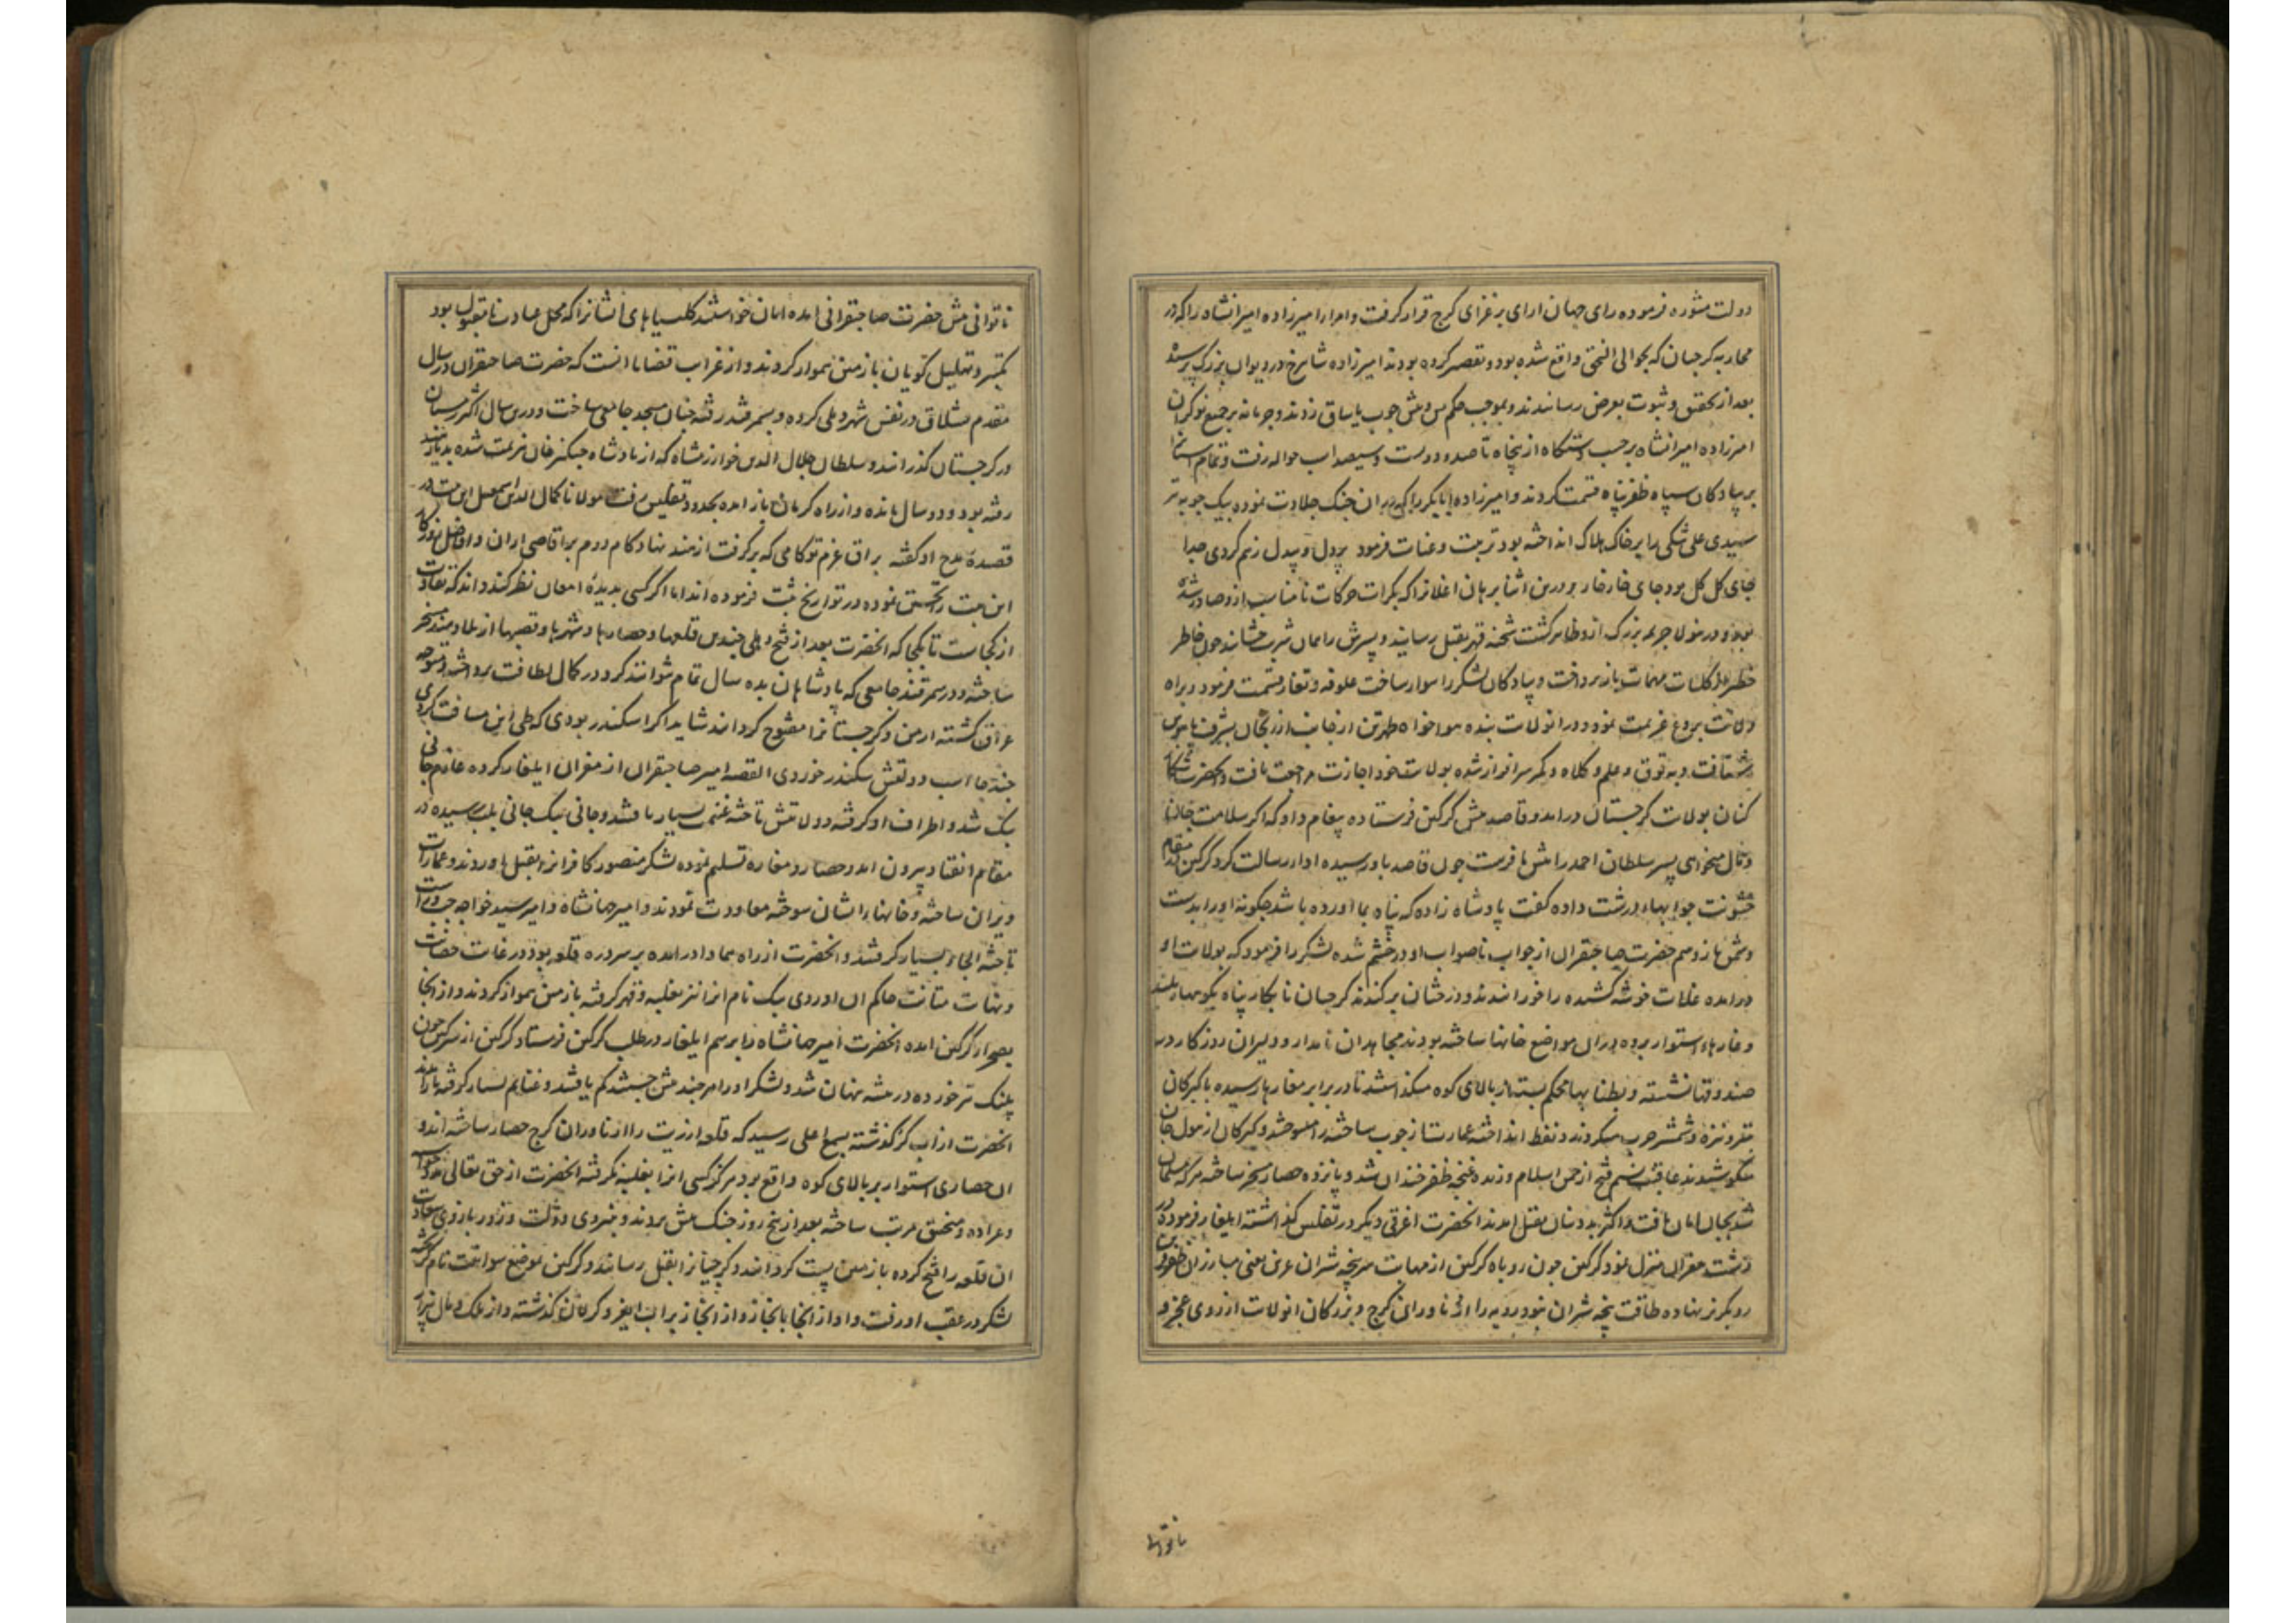 دولت مشوره فرموده رای جهان ارای بر غزای کرج قرار گرفت و امرا را امیرزاده امیرانشاه را که در
محاربه کرجیان که بحوالی النجق واقع شده بود و تقصیر کرده بودند امیرزاده شاهرخ در دیوان بزرگ پرسید
بعد از تحقیق و ثبوت بعرض رسانیدند و بموجب حکم پس و پیش چوب یاساق زدند و جرمانه بر جمیع نوکران
امیرزاده امیرانشاه بر حسب دستگاه از پنجاه تا صد و دویست و سیصد اسب حواله رفت و تمام اسبان را
بر پیادگان سپاه ظفرپناه قسمت کردند و امیرزاده ابابکر را که در ان جنک جلادت نموده بیک چوبه تیر
سیدی علی شکی را بر خاک هلاک انداخته بود تربیت و عنایت فرمود بر دل و بیدل زهم کردی جدا
جای گل گل بود جای خار خار و درین اثنا برهان اغلانرا که بکرات حرکات نامناسب ازو صادر شده
بود و در مغولا جریمه بزرگ ازو ظاهر گشت شحنه قهر بقتل رسانید و پسرش را همان شربت چشانید چون خاطر
خطیر از کلیات مهمات باز پرداخت و پیادگان لشکر را سوار ساخت علوفه و تغار قسمت فرمود و براه
ولایت بردع عزیمت نمود و در انولایت بنده هواخواه طهرتن از جانب ارزنجان بشرف پابوس
شتافت و به توق و علم و کلاه و کمر سرافراز شده بولایت خود اجازت مراجعت یافت و انحضرت شکار
کنان بولایت کرجستان درامد و قاصد پیش کرکین فرستاده پیغام داد که اگر سلامت جانها
و مال میخواهی پسر سلطان احمد را پیش ما فرست چون قاصد باو رسیده ادا رسالت کرد کرکین در مقام
خشونت جوابهاء درشت داده گفت پادشاه زاده که پناه بما اورده باشد چگونه او را بدست
دشمن باز دهم حضرت صاحبقران از جواب ناصواب او در خشم شده لشکر را فرمود که بولایت او
درامده غلات خوشه کشیده را خورانیدند و درختان برکندند کرجیان نابکار پناه بکوههاء بلند
و غارهاء استوار برده در ان مواضع خانها ساخته بودند مجاهدان نامدار و دلیران روزگار در
صندوقها نشسته و بطنابهاء محکم بسته از بالای کوه میگذاشتند تا در برابر مغارها رسیده با کبرکان
بتیر و نیزه و شمشیر حرب میکردند و نفط انداخته عمارت از چوب ساخته را میسوختند و کبرکان از هول جان
میکوشیدند عاقبت نسیم فتح از چمن اسلام وزیده غنچه ظفر خندان شد و پانزده حصار مسخر ساخته هر که مسلمان
شد بجان امان یافت و اکثر بددینان بقتل امدند انحضرت اغرق دیگر در تفلیس گذاشته ایلغار فرموده در
دشت مقران منزل نمود کرکین چون روباه کرکین از مهابت سرپنجه شیران عرین یعنی مبارزان
رو بگریز نهاده طاقت پنجه شیران نبود روبه را ازناوران کرج و بزرگان انولایت از روی عجز و
ناتوانی
ناتوانی پیش حضرت صاحبقرانی امده امان خواستند کلیسیاهای ایشانرا که محل عبادت نامقبول بود
بتکبیر و تهلیل گویان با زمین هموار کردند و از غرایب قضایا انست که حضرت صاحبقران در سال
مقدم قشلاق در نفس شهر دهلی کرده و بسمرقند رفته چنان مسجد جامعی ساخت و درین سال اکثر زمستان
در کرجستان گذرانید و سلطان جلال الدین خوارزمشاه که از پادشاه چنکیز خان هزیمت شده بدیار هند
رفته بود و دو سال مانده و از راه کرمان باز امده بحدود تفلیس رفت مولانا کمال الدین اسمعیل این بیت در
قصیده مدح او گفته براق عزم تو گامی که برگرفت از هند نهاد گام دوم بر اقاصی اران و افاضل روزگار
این بیت را تحسین نموده در تواریخ ثبت فرموده اند اما اگر کسی بدیده امعان نظر کند داند که تفاوت
از کجاست تا بکجا که انحضرت بعد از فتح دهلی چندین قلعها و حصارها و شهرها و قصبها از بلاد هند مسخر
ساخته و در سمرقند جامعی که پادشاهان بده سال تمام نتوانند کرد در کمال لطافت پرداخته و متوجه
عراق گشته ارمن و کرجستانرا مفتوح گرداند شاید اگر اسکندر بودی که طی این مسافت کردی
چند جا اسب دولتش سکندر خوردی القصه امیر صاحبقران از مقران ایلغار کرده عازم جانی
بیک شد و اطراف او گرفته و ولایتش تاخته غنیمت بسیار یافتند و جانی بیک جانی بلب رسیده در
مقام انقیاد بیرون امد و حصار و مغاره تسلیم نموده لشکر منصور کافرانرا بقتل اوردند و عمارات
ویران ساخته و خانها ایشان سوخته معاودت نمودند و امیر جهانشاه و امیر سید خواجه چپ و راست
تاخته الجاء بسیار گرفتند و انحضرت از راه سما وا درامده بر سر دره قلعه بود در غایت حصانت
و نهایت متانت حاکم ان اوردی بیک نام انرا نیز بغلبه و قهر گرفته با زمین هموار کردند و از انجا
بصحراء کرکین امده انحضرت امیر جهانشاه را برسم ایلغار در طلب کرکین فرستاد کرکین از سرکین چون
پلنک تیر خورده در بیشه پنهان شد و لشکر او را هر چند بیش جستند کم یافتند و غنایم بسیار گرفته باز امدند
انحضرت از اب کر گذشته بسمع اعلی رسید که قلعه ارزیت را ازناوران کرج حصار ساخته اند و
ان حصاری استوار بر بالای کوه واقع بود هرگز کسی انرا بغلبه نگرفته انحضرت از حق تعالی مدد خواسته
و عراده و منجنیق مرتب ساخته بعد از پنج روز جنک پیش بردند و بنیروی دولت و زور بازوی سعادت
ان قلعه را فتح کرده با زمین پست گردانیدند و کرجیانرا بقتل رسانیدند و کرکین بموضع سوانیت نام گریخته
لشکر در عقب او رفت و او از انجا بابخاز و از ابخاز بر اب ایغر و کرلان گذشته و از ملک و مال تبرا